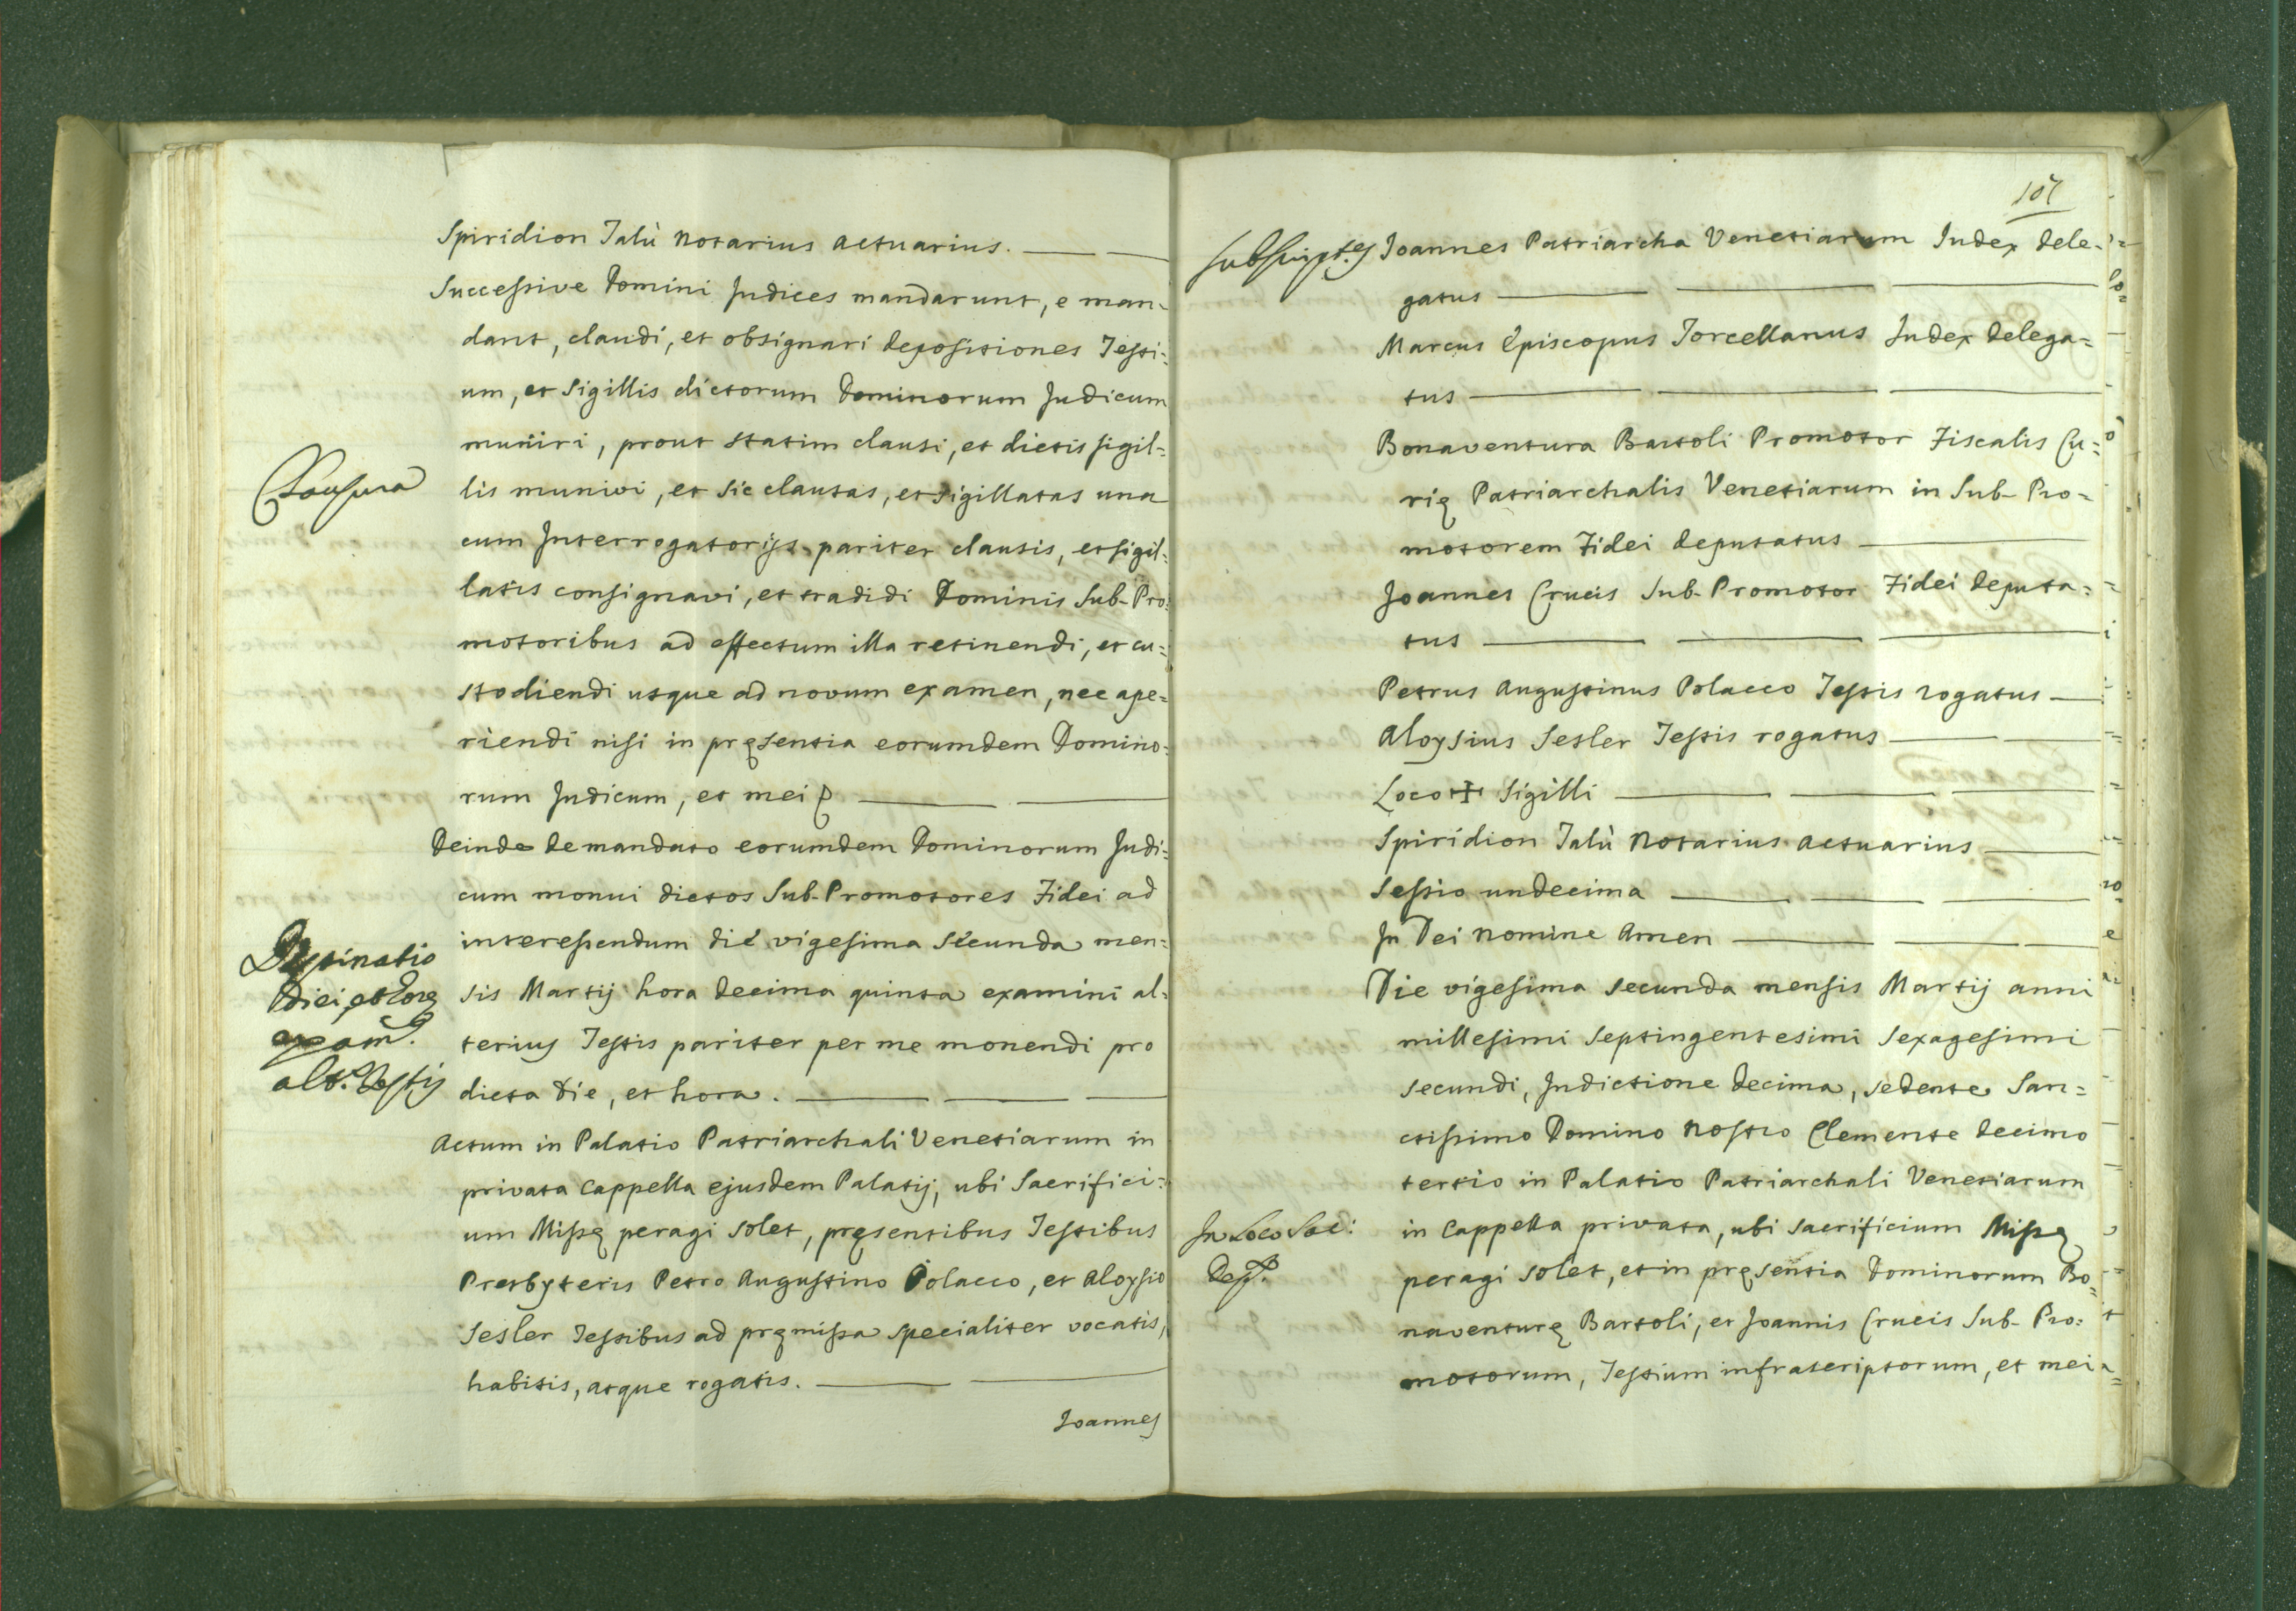 Spiridion Talù Notarius Actuarius.
Successive Domini Judices mandarunt, e man-
dant, claudi, et obsignari depositiones Testi=
um, et Sigillis dictorum Dominorum Judicum
muniri, prout statim clausi, et dictis sigil=
Clausura
lis munivi, et sic clausas, et sigillatas una
cum Interrogatorijs pariter clausis, et sigil=
latis consignavi, et tradidi Dominis Sub-Pro=
motoribus ad effectum illa retinendi, et cu=
stodiendi usque ad novum examen, nec ape=
riendi nisi in pręsentia eorumdem Domino=
rum Judicum, et mei
Deinde de mandato eorumdem Dominorum Judi=
cum monui dictos Sub-Promotores Fidei ad
interessendum die vigesima secunda men=
Destinatio
diei, et horę
exam.
alt. Testis
sis Martij hora decima quinta examini al=
terius Testis pariter per me monendi pro
dicta die, et hora.
Actum in Palatio Patriarchali Venetiarum in
privata Cappella ejusdem Palatij, ubi Sacrifici=
um Missę peragi solet, pręsentibus Testibus
Presbyteris Petro Augustino Polacco, et Aloysio
Sesler Testibus ad pręmissa specialiter vocatis,
habitis, atque rogatis.
Joannes
107
Joannes Patriarcha Venetiarum Judex dele-
gatus
Marcus Episcopus Torcellanus Judex delega=
tus
Bonaventura Bartoli Promotor Fiscalis Cu=
rię Patriarchalis Venetiarum in Sub-Pro=
motorem Fidei deputatus
Joannes Crucis Sub-Promotor Fidei deputa=
tus
Petrus Augustinus Polacco Testis rogatus
Aloysius Sesler Testis rogatus
Loco + Sigilli
Spiridion Talù Notarius Actuarius
Sessio undecima
In Dei nomine Amen
Die vigesima secunda mensis Martij anni
millesimi septingentesimi sexagesimi
secundi, Indictione decima, sedente San=
ctissimo Domino Nostro Clemente decimo
tertio in Palatio Patriarchali Venetiarum
In Loco Sac:
in Cappella privata, ubi sacrificium Missę
peragi solet, et in pręsentia Dominorum Bo=
naventurę Bartoli, et Joannis Crucis Sub-Pro=
motorum, Testium infrascriptorum, et mei